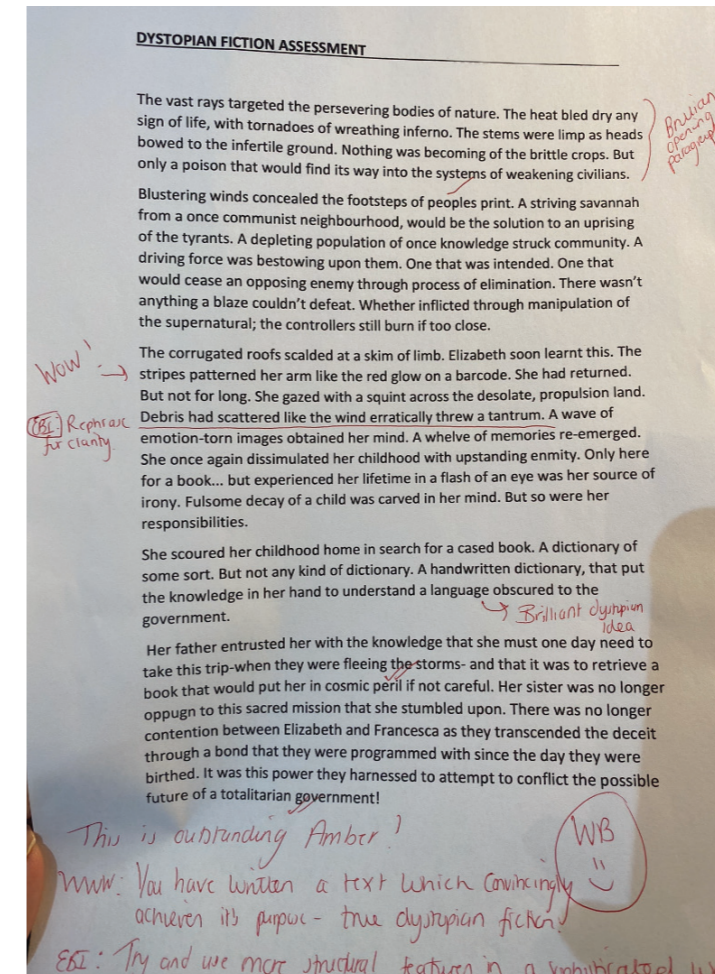 DYSTOPIAN FICTION ASSESSMENT
The vast rays targeted the persevering bodies of nature. The heat bled dry any
sign of life, with tornadoes of wreathing inferno. The stems were limp as heads
bowed to the infertile ground. Nothing was becoming of the brittle crops. But
only a poison that would find its way into the systems of weakening civilians.
Brilliant
opening
paragraph
Blustering winds concealed the footsteps of peoples print. A striving savannah
from a once communist neighbourhood, would be the solution to an uprising
of the tyrants. A depleting population of once knowledge struck community. A
driving force was bestowing upon them. One that was intended. One that
would cease an opposing enemy through process of elimination. There wasn't
anything a blaze couldn't defeat. Whether inflicted through manipulation of
the supernatural; the controllers still burn if too close.
Wow!
The corrugated roofs scalded at a skim of limb. Elizabeth soon learnt this. The
stripes patterned her arm like the red glow on a barcode. She had returned.
But not for long. She gazed with a squint across the desolate, propulsion land.
EBI: Rephrase
for clarity.
Debris had scattered like the wind erratically threw a tantrum. A wave of
emotion-torn images obtained her mind. A whelve of memories re-emerged.
She once again dissimulated her childhood with upstanding enmity. Only here
for a book... but experienced her lifetime in a flash of an eye was her source of
irony. Fulsome decay of a child was carved in her mind. But so were her
responsibilities.
She scoured her childhood home in search for a cased book. A dictionary of
some sort. But not any kind of dictionary. A handwritten dictionary, that put
the knowledge in her hand to understand a language obscured to the
government.
Brilliant dystopian
idea
Her father entrusted her with the knowledge that she must one day need to
take this trip-when they were fleeing the storms- and that it was to retrieve a
book that would put her in cosmic peril if not careful. Her sister was no longer
oppugn to this sacred mission that she stumbled upon. There was no longer
contention between Elizabeth and Francesca as they transcended the deceit
through a bond that they were programmed with since the day they were
birthed. It was this power they harnessed to attempt to conflict the possible
future of a totalitarian government!
This is outstanding Amber!
WB
WWW: You have written a text which convincingly
achieves its purpose - true dystopian fiction!
EBI: Try and use more structural features in a sophisticated